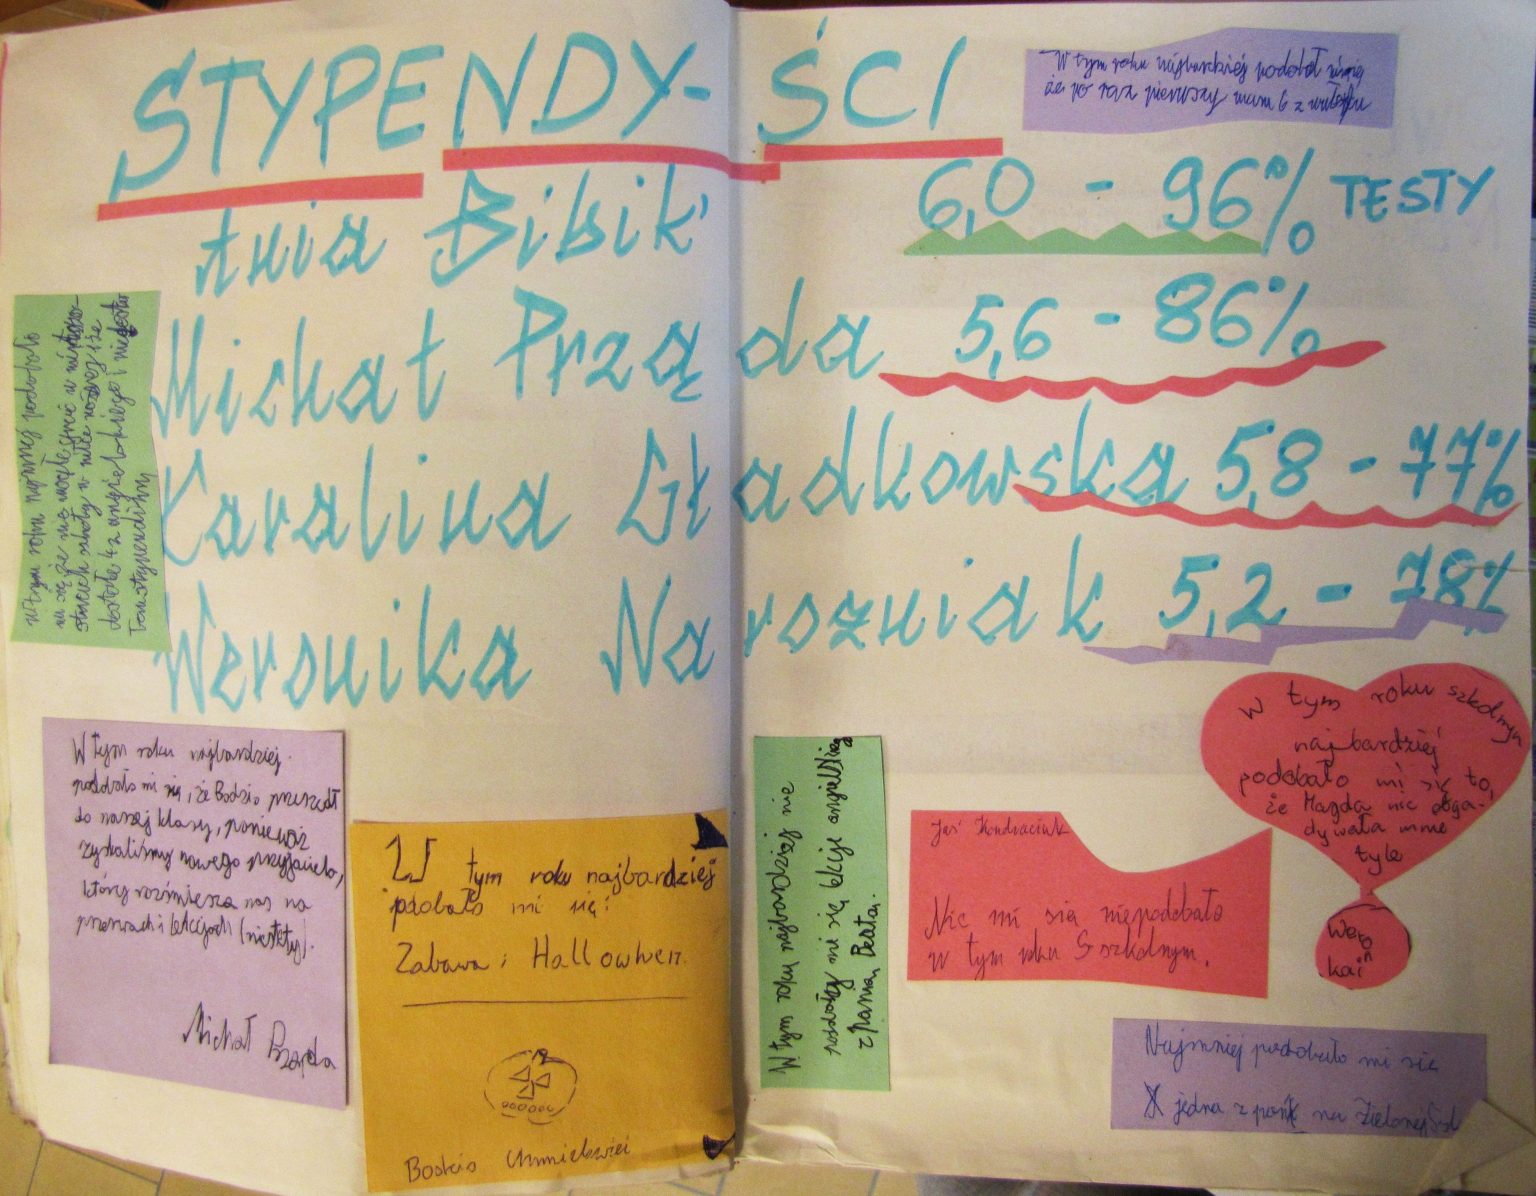 STYPENDY-ŚCI
W tym roku najbardziej podobał
że po raz pierwszy mam 6 z
Ania Bibik 6,0 - 96% TESTY
Michał Prząda 5,6 - 86%
Karolina Gładkowska 5,8 - 77%
Weronika Narozniak 5,2 - 78%
w tym roku podobało
mi się że nie mogłe
dostałe 4 z angielskiego i
W tym roku najbardziej
podobało mi się, że Bodzio przeszedł
do naszej klasy, ponieważ
zyskaliśmy nowego przyjaciela,
który rozmiesza nas na
przerwach i lekcjach (niestety).
Michał Prząda
W tym roku najbardziej
podobało mi się:
Zabawa i Hallowwen.
W tym roku najbardziej nie
podobały mi się lekcje
z Panią Beatą.
Jaś Kondraciuk
Nic mi sią niepodobało
w tym roku szkolnym.
W tym roku szkolnym
najbardziej
podobało mi się to,
że Magda nie obga-
dywała mnie
tyle
Wero
n
kai
Najmniej podobało mi się
jedna z na Zielonej